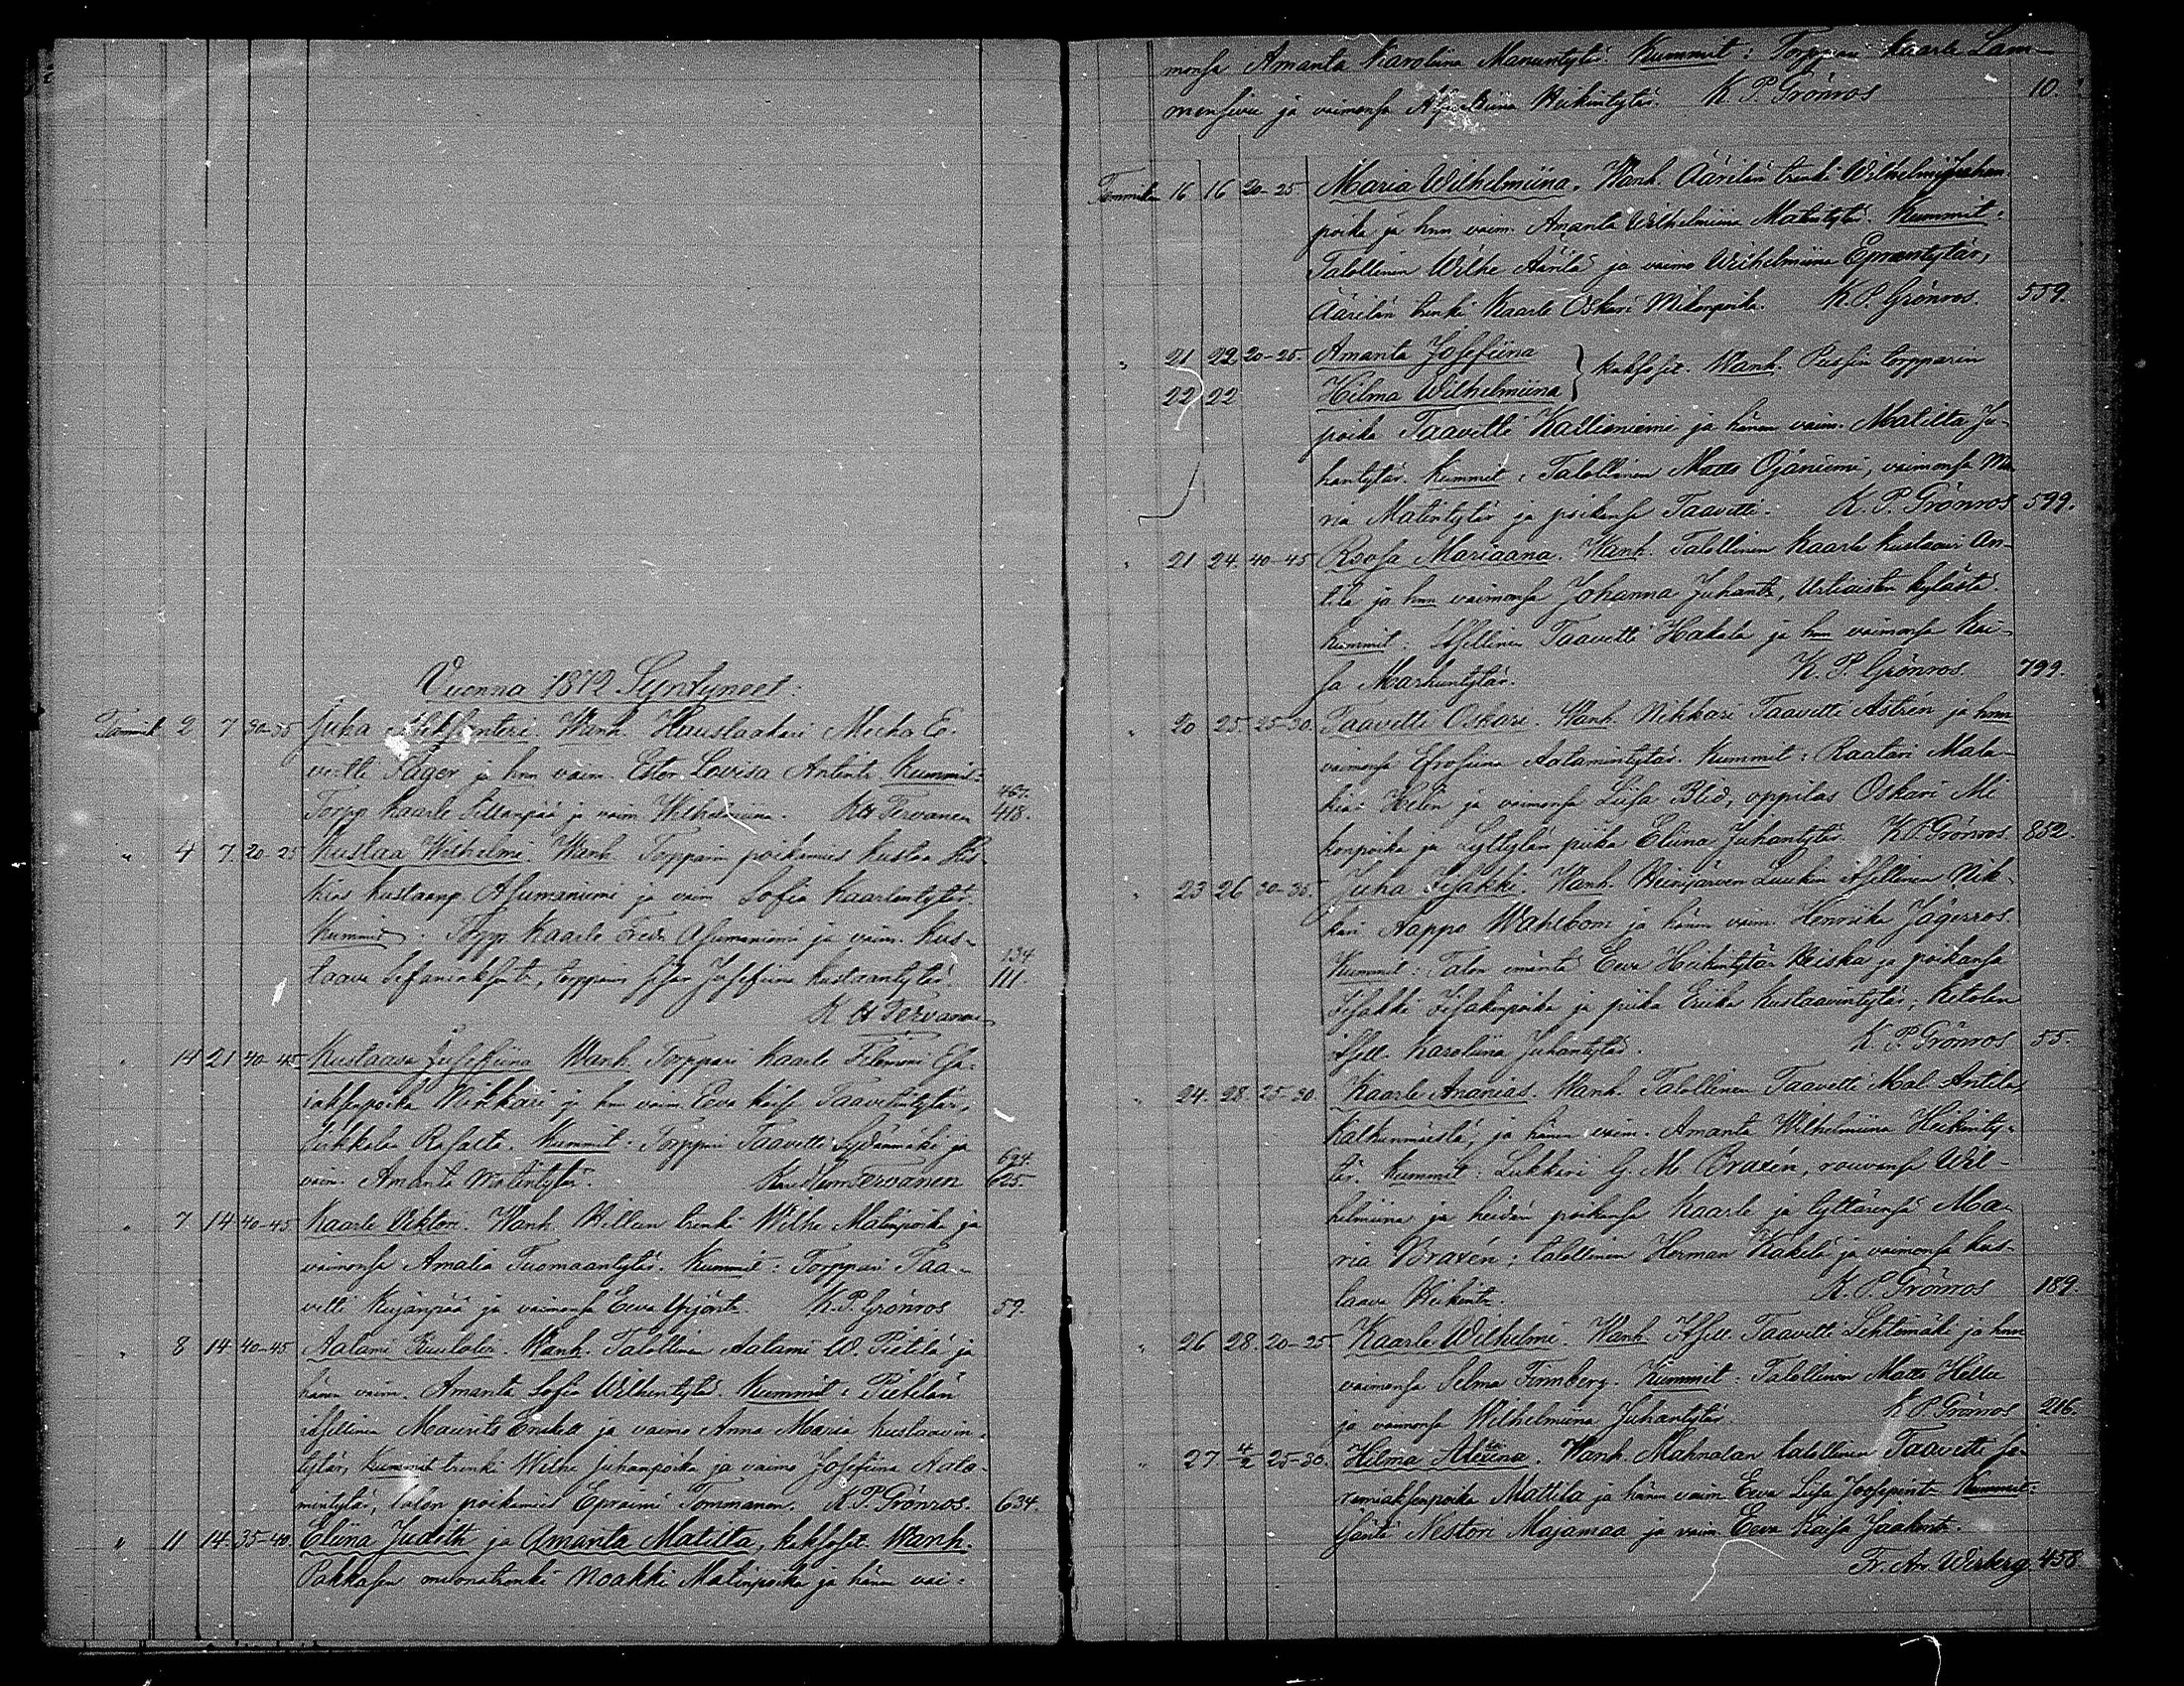 Vuonna 1872 Syntyneet:
Tammik 2 7 30-35 Juha Aleksanteri. Wanh. Hauslaakari Micha Ee-
vertti Jäger ja hnn vaim. Ester Lovisa Antint. Kummit:
Torpp Kaarle Sillanpää ja vaim Wilhelmiina. Tervanen 467. 418.
" 4 7 20-25 Kustaa Wilhelmi. Wanh. Torpparin poikamies Kustaa His-
kias Kustaanp. Asumaniemi ja vaim Sofia Kaarlentytär.
Kummit. Torpp Kaarle Fredr Asumaniemi ja vaim. Kus-
taava Sefaniaksent., torpparin sisar Josefiina Kustaantytär. 134 111.
K Tervanen
" 14 21 40-45 Kustaava Josefiina Wanh. Torppari Kaarle Filemoni Esa-
iaksenpoika Nikkari ja hnn vaim. Eeva Kaisa Taavetintytär,
Kummit: Torppari Taavetti Sydänmäki ja
vaim. Amanta Matintytär. Tervanen 624. 625.
" 7 14 40-45 Kaarle Viktori. Wanh. Hellun trenki Wilhe Matinpoika ja
vaimonsa Amalia Tuomaantytär. Kummit: Torppari Taa-
vetti Kujanpää ja vaimonsa Eeva Yrjönt. K.P. Grönroos 59.
" 8 14 40-45 Aatami . Wanh. Talollinen Aatami W. Pietilä ja
hänen vaim. Amanta Sofia Wilhentytär. Kummit: Pietilän
itsellinen Maurits ja vaimo Anna Maria Kustaavin-
tytär, Kummit trenki Wilhe Juhanpoika ja vaimo Josefiina Aata-
mintytär, talon poikamies Epraimi Tommanen. K.P. Grönroos. 634.
" 11 14 35-40 Eliina Judith ja Amanta Matilta, kaksoset. Wanh.
Pakkasen muonatrenki Noakki Matinpoika ja hänen vai-
monsa Amanta Karoliina Manuntytär. Kummit: Torppari Kaarle Lam-
mensivu ja vaimonsa Heikintytär. K P. Grönroos 10.
Tammikuu 16 16 20-25 Maria Wilhelmiina. Wanh. Äärilän trenki Wilhelmi Juhan
poika ja hnn vaim. Amanta Wilhelmiina Matintytär. Kummit:
Talollinen Wilhe Äärilä ja vaimo Wilhelmiina Epramintytär,
Äärilän trenki Kaarle Oskari Mikonpoika. K.P. Grönroos. 559.
" 21 22 20-25 Amanta Josefiina
22 22 Hilma Wilhelmiina } kaksoset. Wanh. torpparin
poika Taavetti Kallioniemi ja hänen vaim. Matilta Ju-
hantytär. Kummit: Talollinen Matts Ojaniemi, vaimonsa Ma
ria Matintytär ja poikansa Taavetti. K.P. Grönroos 599.
" 21 24 40-45 Roosa Mariaana. Wanh. Talollinen Kaarle Kustaavi An-
tila ja hnn vaimonsa Johanna Juhant., Urtiaisten kylästä.
Kummit: Itsellinen Taavetti Hakala ja hnn vaimonsa Kai-
sa Markuntytär. K.P. Grönroos. 799.
" 20 25 25-30. Taavetti Oskari. Wanh. Nikkari Taavetti Astrén ja hnn
vaimonsa Efrosiina Aatamintytär. Kummit: Raatari Mala-
kias Helin ja vaimonsa Liisa Blid, oppilas Oskari Mi
konpoika ja Lyttylän piika Eliina Juhantytär. K.P. Grönroos. 852.
" 23 26 30-35. Juha Iisakki. Wanh. Heinijärven Luukin itsellinen Nik-
kari Aappo Wahlbom ja hänen vaim. Henriika Jägerroos.
Kummit: Talon emäntä Eeva Heikintytär Heiska ja poikansa
Iisakki Iisakinpoika ja piika Eriika Kustaavintytär, Ketolan
itsell. Karoliina Juhantytär. K.P. Grönroos 55.
" 24. 28. 25-30. Kaarle Ananias. Wanh. Talollinen Taavetti Mal. Antila,
Kalkunmäestä, ja hänen vaim. Amanta Wilhelmiina Heikinty-
tär. Kummit: Lukkari G. M. Braxén, rouvansa Wil-
helmiina ja heidän poikansa Kaarle ja tyttärensä Ma-
ria Braxén; talollinen Herman Käkelä ja vaimonsa Kus-
taava Heikint. K.P. Grönroos 189.
" 26 28. 20-25 Kaarle Wilhelmi. Wanh. Itsell. Taavetti Lehtimäki ja hnn
vaimonsa Selma Finnberg. Kummit: Talollinen Matts Hellu
ja vaimonsa Wilhelmiina Juhantytär. K.P. Grönroos 216.
" 27 4/2 25-30. Hilma Aleksina. Wanh. Mahnalan talollinen Taavetti Je-
remiaksenpoika Mattila ja hänen vaim. Eeva Liisa Joosepint. Kummit:
Isäntä Nestori Majamaa ja vaim. Eeva Kaisa Jaakont.
Fr. An. Wirberg. 458